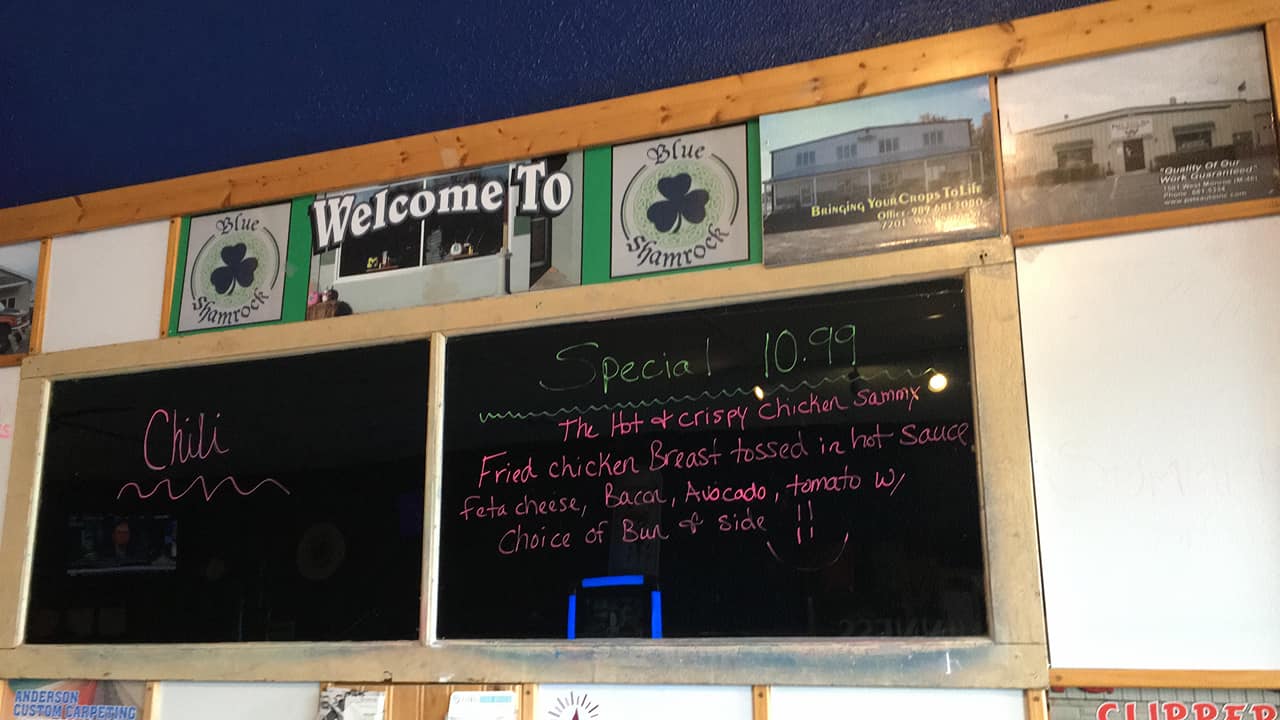 Blue
Shamrock
Welcome To
Blue
Shamrock
BRINGING YOUR CROPS TO LIFE
Office 989-681-3080
7201
"Quality Of Our
Work Guaranteed"
1501 West Monroe (M-46)
Phone 681-5354
Chili
Special 10.99
The Hot & Crispy Chicken Sammy
Fried chicken Breast tossed in hot sauce
feta cheise, Bacon, Avocado, tomato w/
Choice of Bun & side !!
ANDERSON
CUSTOM CARPETING
CLIPPER